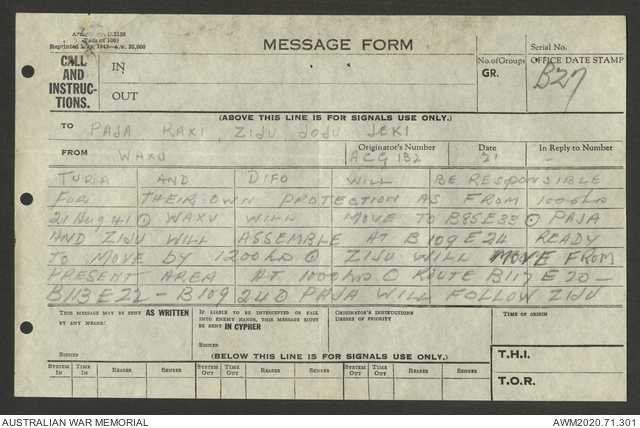 Army
(Pads of 100)
Reprinted May, 1942—s.w. 25,000
MESSAGE FORM
Serial No.
CALL AND INSTRUCTIONS.
IN
No. of Groups
GR.
OFFICE DATE STAMP
B27
OUT
(ABOVE THIS LINE IS FOR SIGNALS USE ONLY.)
TO PAJA RAXI ZIJU JOJU JEKI
FROM WAXU
Originator's Number
ACG 132
Date
21
In Reply to Number
-
TURA AND DIFO WILL BE RESPONSIBLE
FOR THEIR OWN PROTECTION AS FROM 1000 hrs
21 Aug 41 WAXU WILL MOVE TO B85E33 PAJA
AND ZIJU WILL ASSEMBLE AT B109E24 READY
TO MOVE BY 1200 hrs ZIJU WILL MOVE FROM
PRESENT AREA AT 1000 hrs ROUTE B117E20 —
B113E22 — B109 PAJA WILL FOLLOW ZIJU
THIS MESSAGE MAY BE SENT AS WRITTEN BY ANY MEANS:
SIGNED
IF LIABLE TO BE INTERCEPTED OR FALL INTO ENEMY HANDS, THIS MESSAGE MUST BE SENT IN CIPHER
SIGNED
ORIGINATOR'S INSTRUCTIONS
DEGREE OF PRIORITY
TIME OF ORIGIN
(BELOW THIS LINE IS FOR SIGNALS USE ONLY.)
T.H.I.
T.O.R.
SYSTEM IN TIME IN READER SENDER SYSTEM OUT TIME OUT READER SENDER SYSTEM OUT TIME OUT READER SENDER
AUSTRALIAN WAR MEMORIAL
AWM2020.71.301